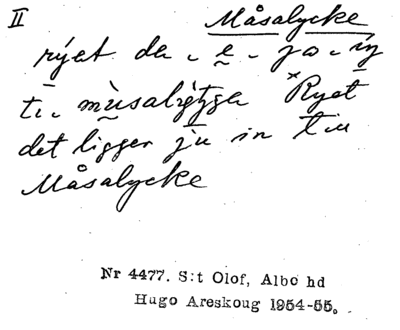 II Måsalycke
rýet da . e . ja . iŋ
ti . mùsalýtjga ˣRyet
det ligger ju in till
Måsalycke
Nr 4477. S:t Olof, Albo hd
Hugo Areskoug 1954-55.